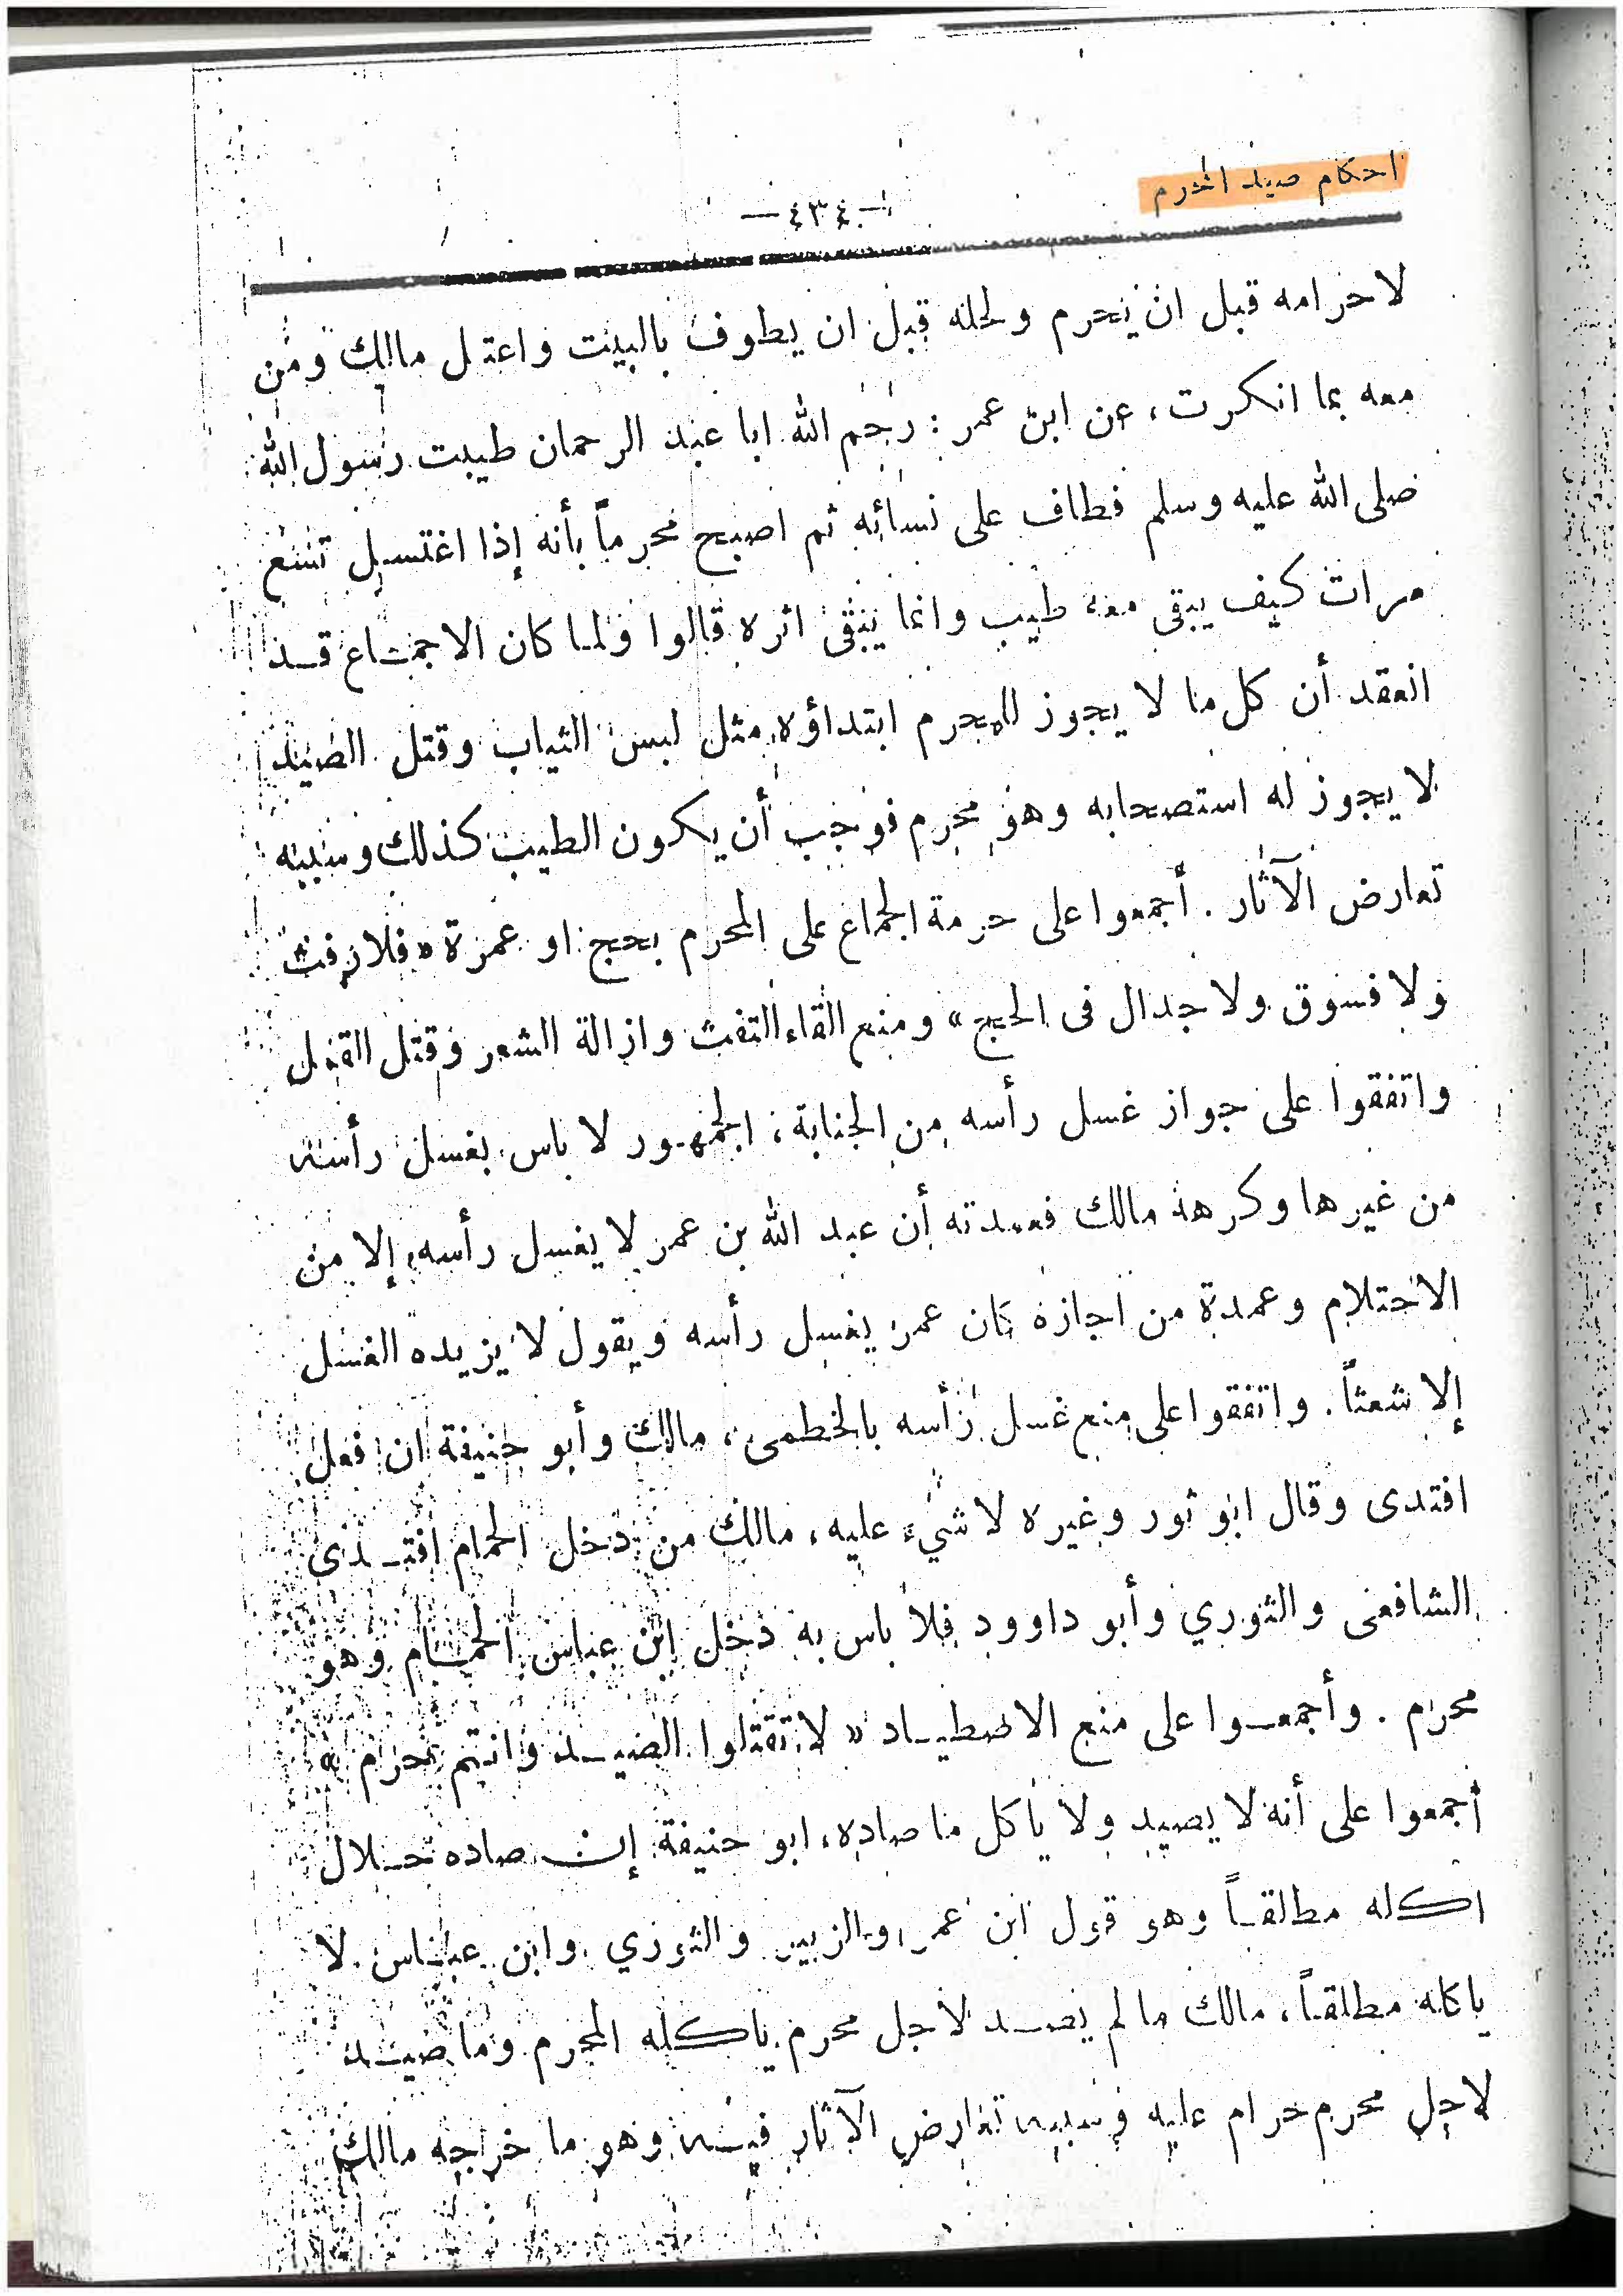 احكام صيد المحرم
— ٤٣٤ —
لاحرامه قبل ان يحرم ولحله قبل ان يطوف بالبيت واعتل مالك ومن
معه بما انكرت، عن ابن عمر : رحم الله ابا عبد الرحمان طيبت رسول الله
صلى الله عليه وسلم فطاف على نسائه ثم اصبح محرماً بأنه إذا اغتسل تسع
مرات كيف يبقى معه طيب وانما يبقى اثره قالوا ولما كان الاجماع قد
انعقد أن كل ما لا يجوز للمحرم ابتداؤه مثل لبس الثياب وقتل الصيد
لا يجوز له استصحابه وهو محرم فوجب أن يكون الطيب كذلك وسببه
تعارض الآثار . أجمعوا على حرمة الجماع على المحرم بحج او عمرة « فلا رفث
ولا فسوق ولا جدال فى الحج » ومنع القاء التفث وازالة الشعر وقتل القمل
واتفقوا على جواز غسل رأسه من الجنابة، الجمهور لا باس بغسل رأسه
من غيرها وكرهه مالك فعمدته أن عبد الله بن عمر لا يغسل رأسه إلا من
الاحتلام وعمدة من اجازه كان عمر يغسل رأسه ويقول لا يزيده الغسل
إلا شعثاً . واتفقوا على منع غسل رأسه بالخطمى، مالك وأبو حنيفة ان فعل
افتدى وقال ابو ثور وغيره لا شيء عليه، مالك من دخل الحمام افتدى
الشافعى والثوري وأبو داوود فلا باس به دخل ابن عباس الحمام وهو
محرم . وأجمعوا على منع الاصطياد « لا تقتلوا الصيد وانتم حرم »
أجمعوا على أنه لا يصيد ولا يأكل ما صاده، ابو حنيفة إن صاده حلال
اكله مطلقاً وهو قول ابن عمر والزبير والثوري وابن عباس لا
ياكله مطلقاً، مالك ما لم يصد لاجل محرم ياكله المحرم وما صيد
لاجل محرم حرام عليه وسببه تعارض الآثار فيه وهو ما خراجه مالك